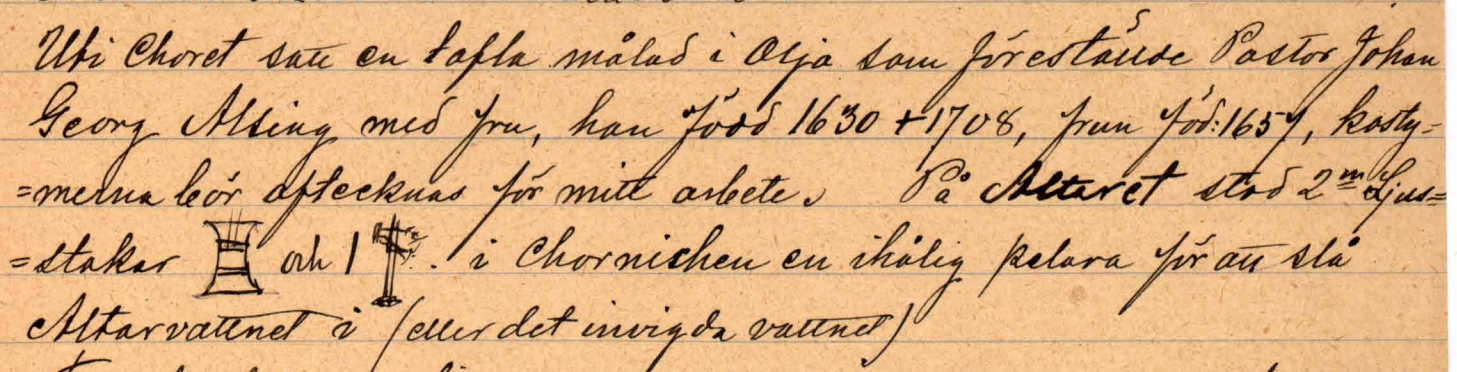 Uti Choret satt en tafla målad i Olja som förestälde Pastor Johan
Georg Alsing med fru, han född 1630 +1708, frun föd: 1657, kosty=
=merna bör aftecknas för mitt arbete. På Altaret stod 2ⁿᵉ Ljus=
=stakar och 1 . i Chornichen en ihålig pelare för att slå
Altarvattnet i (eller det invigda vattnet)